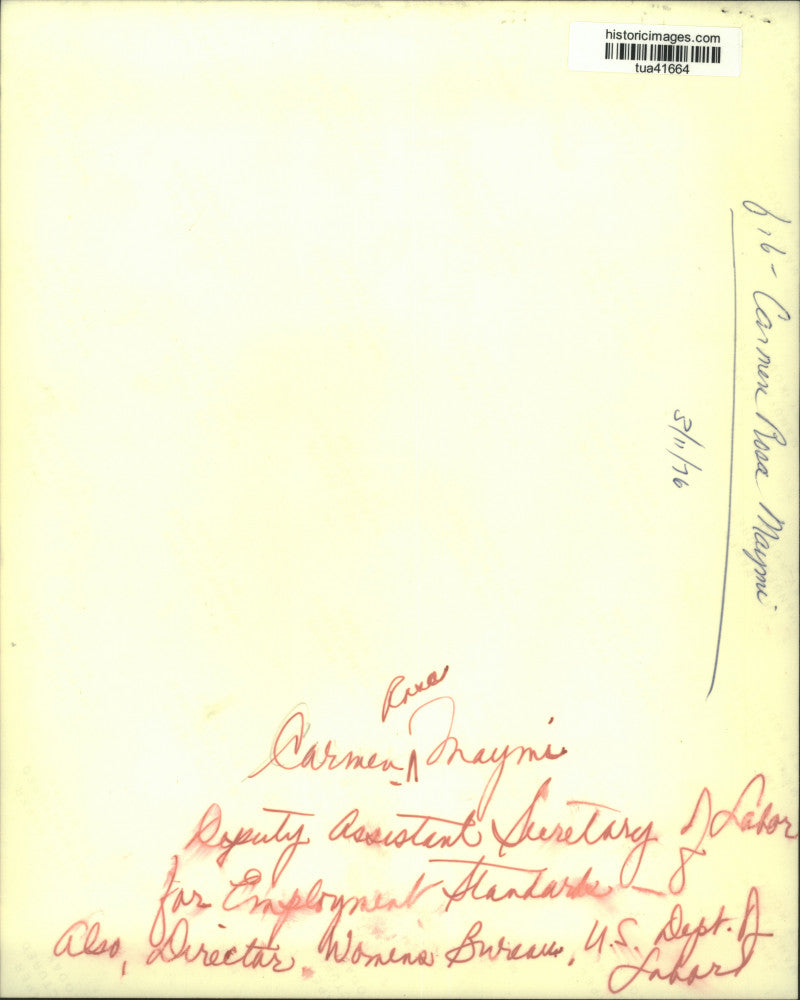 historicimages.com
tua41664
bib - Carmen Rosa Maymi
3/11/76
Rosa
Carmen ^ Maymi
Deputy Assistant Secretary of Labor
for Employment Standards -
Also, Director, Womens Bureau, U.S. Dept. of
Labor